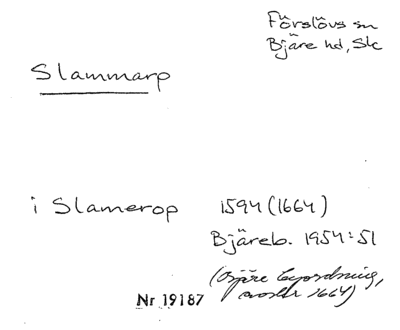 Förslövs sn
Bjäre hd, Sk
Slammarp
i Slamerop 1594 (1664)
Bjäreb. 1954:51
(Bjäre byordning,
avskr 1664)
Nr 19187